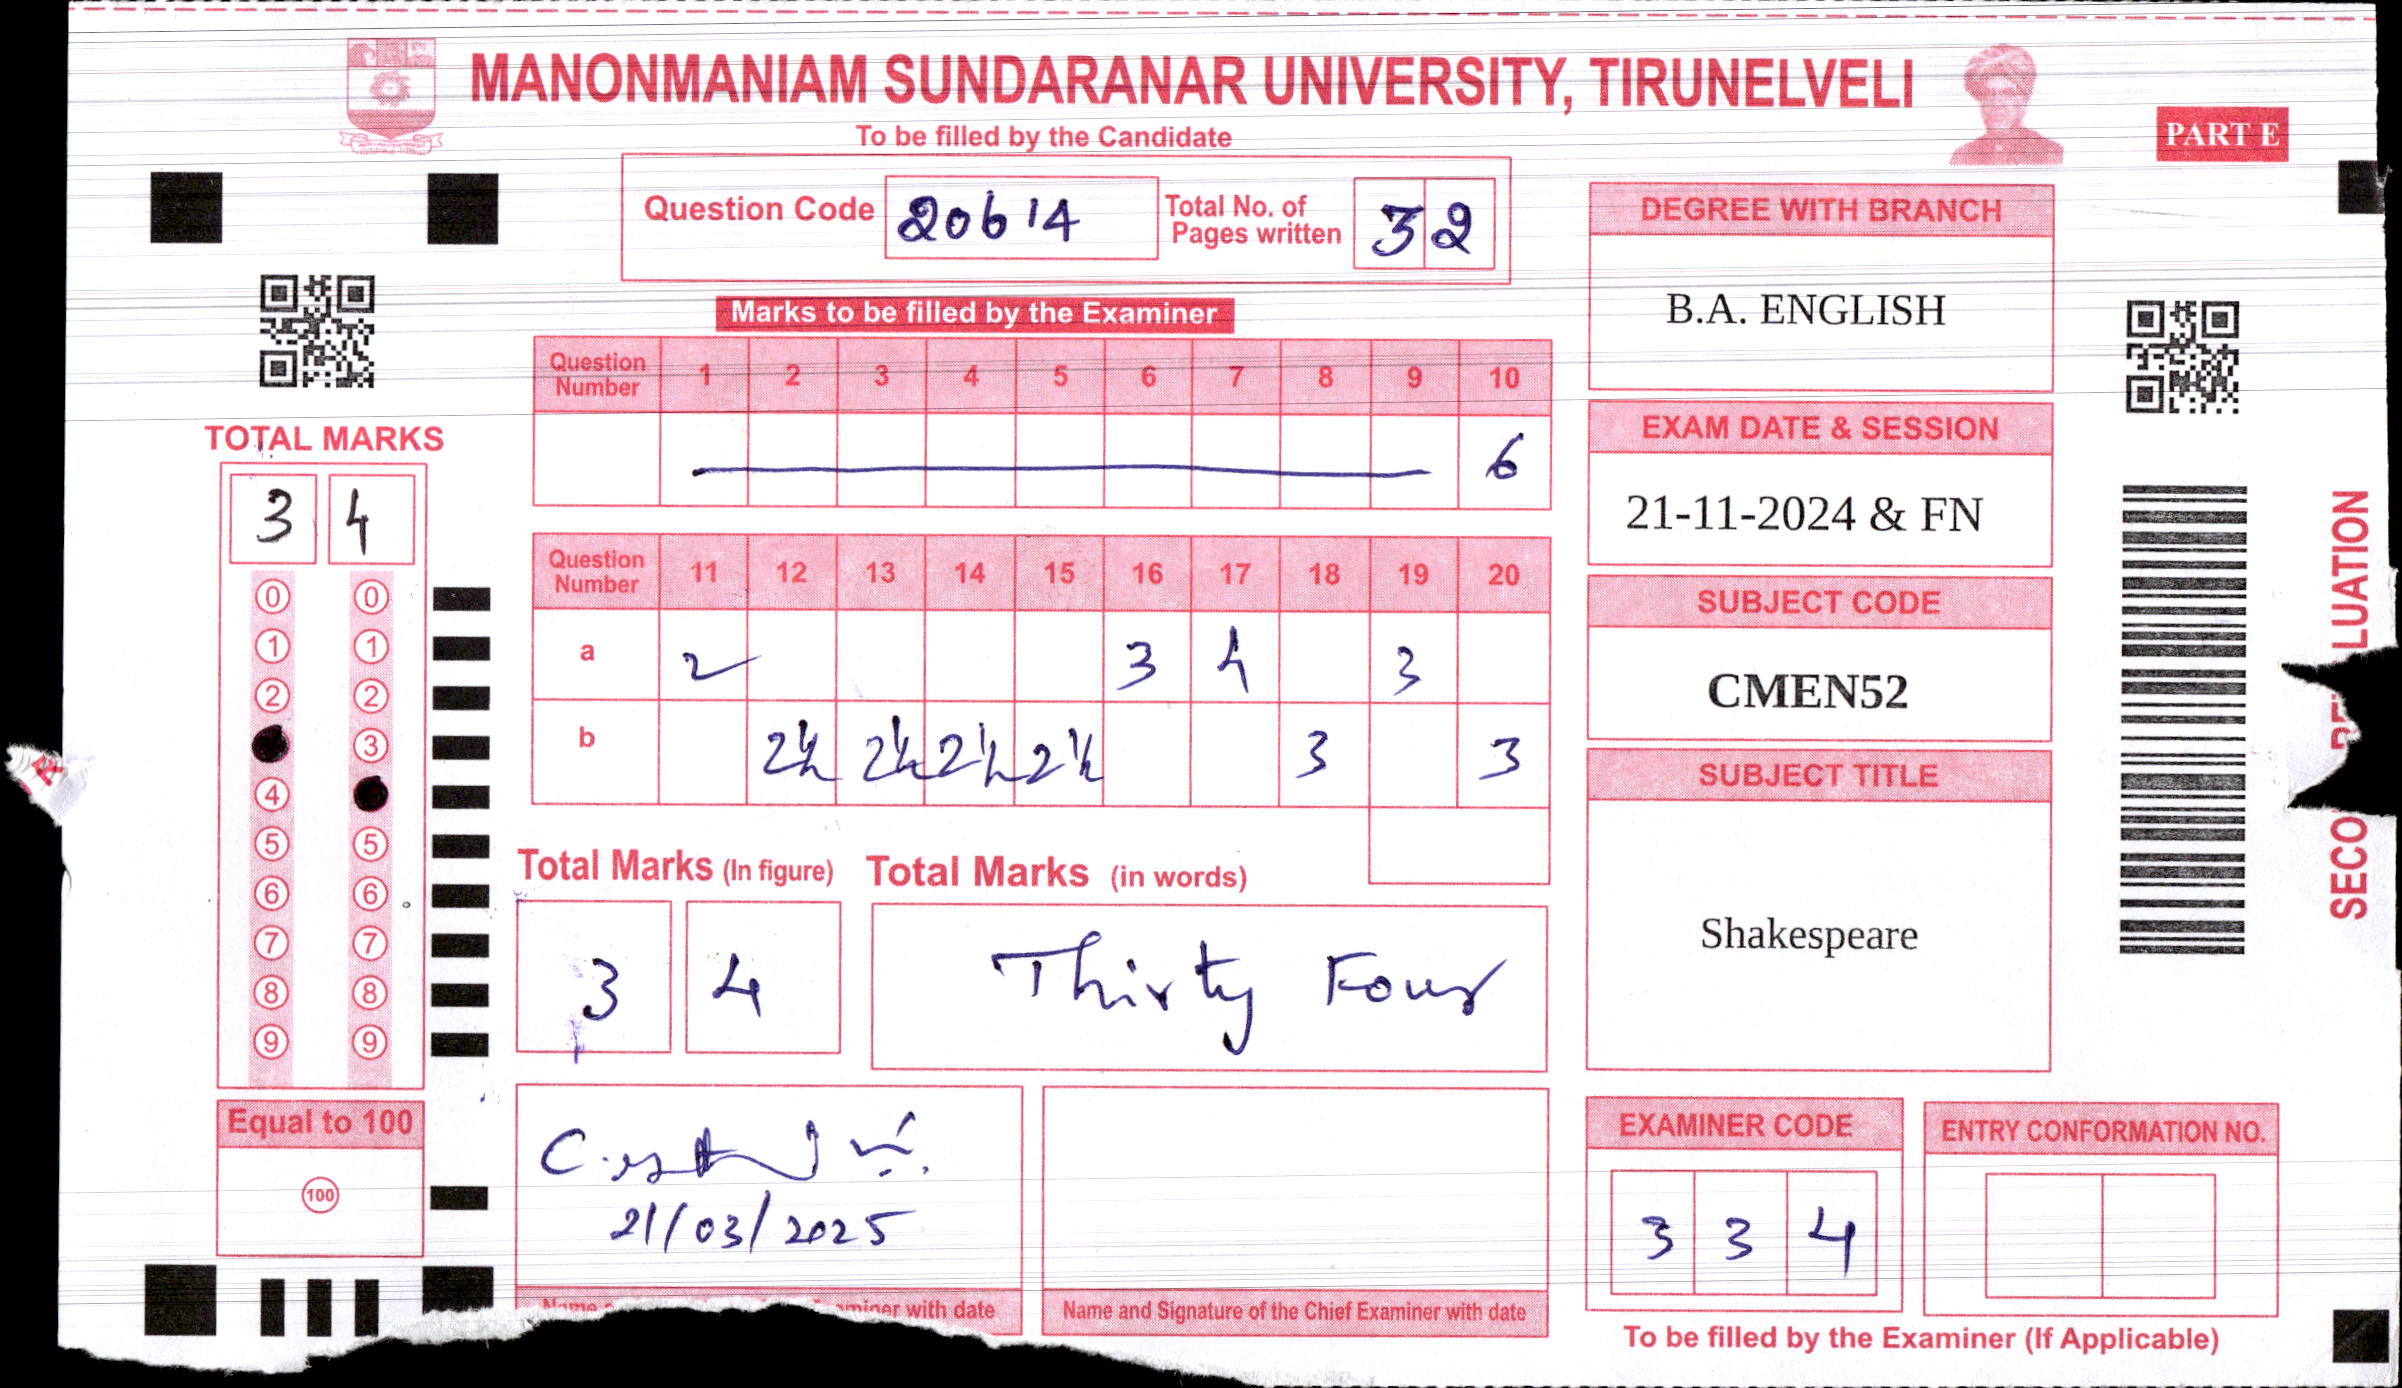 MANONMANIAM SUNDARANAR UNIVERSITY, TIRUNELVELI
To be filled by the Candidate
PART E
Question Code 20614 Total No. of Pages written 32
Marks to be filled by the Examiner
Question Number 1 2 3 4 5 6 7 8 9 10
6
Question Number 11 12 13 14 15 16 17 18 19 20
a 2 3 4 3
b 2½ 2½ 2½ 2½ 3 3
Total Marks (In figure) Total Marks (in words)
3 4 Thirty Four
21/03/2025
miner with date
Name and Signature of the Chief Examiner with date
TOTAL MARKS
3 4
0 0
1 1
2 2
3
4
5 5
6 6
7 7
8 8
9 9
Equal to 100
100
DEGREE WITH BRANCH
B.A. ENGLISH
EXAM DATE & SESSION
21-11-2024 & FN
SUBJECT CODE
CMEN52
SUBJECT TITLE
Shakespeare
EXAMINER CODE
3 3 4
ENTRY CONFORMATION NO.
To be filled by the Examiner (If Applicable)
SECO LUATION